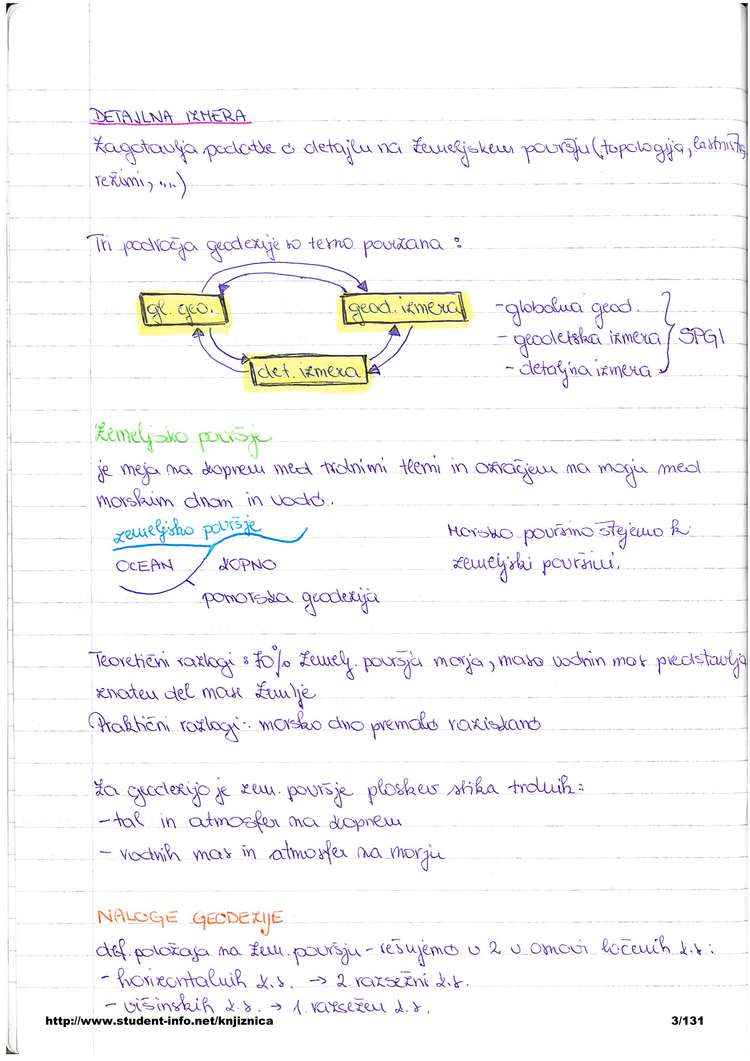 DETAJLNA IZMERA
Zagotavlja podatke o detajlu na Zemeljskem površju (topologija, lastništvo,
režimi, ...)
Tri področja geodezije so tesno povezana :
gl. geo.
geod. izmera
det. izmera
- globalna geod.
- geodetska izmera
- detajlna izmera
SPGI
Zemeljsko površje
je meja na kopnem med trdnimi tlemi in ozračjem na morju med
morskim dnom in vodo.
zemeljsko površje
OCEAN
KOPNO
pomorska geodezija
Morsko površino štejemo k
zemeljski površini.
Teoretični razlogi : 70% Zemelj. površja morja, masa vodnih mas predstavlja
znaten del mase Zemlje
Praktični razlogi : morsko dno premalo raziskano
Za geodezijo je zem. površje ploskev stika trdnih :
- tal in atmosfer na kopnem
- vodnih mas in atmosfer na morju
NALOGE GEODEZIJE
def. položaja na Zem. površju - rešujemo v 2 v osnovi ločenih k.s :
- horizontalnih k.s. → 2. razsežni k.s.
- višinskih k.s. → 1. razsežen k.s.
http://www.student-info.net/knjiznica
3/131